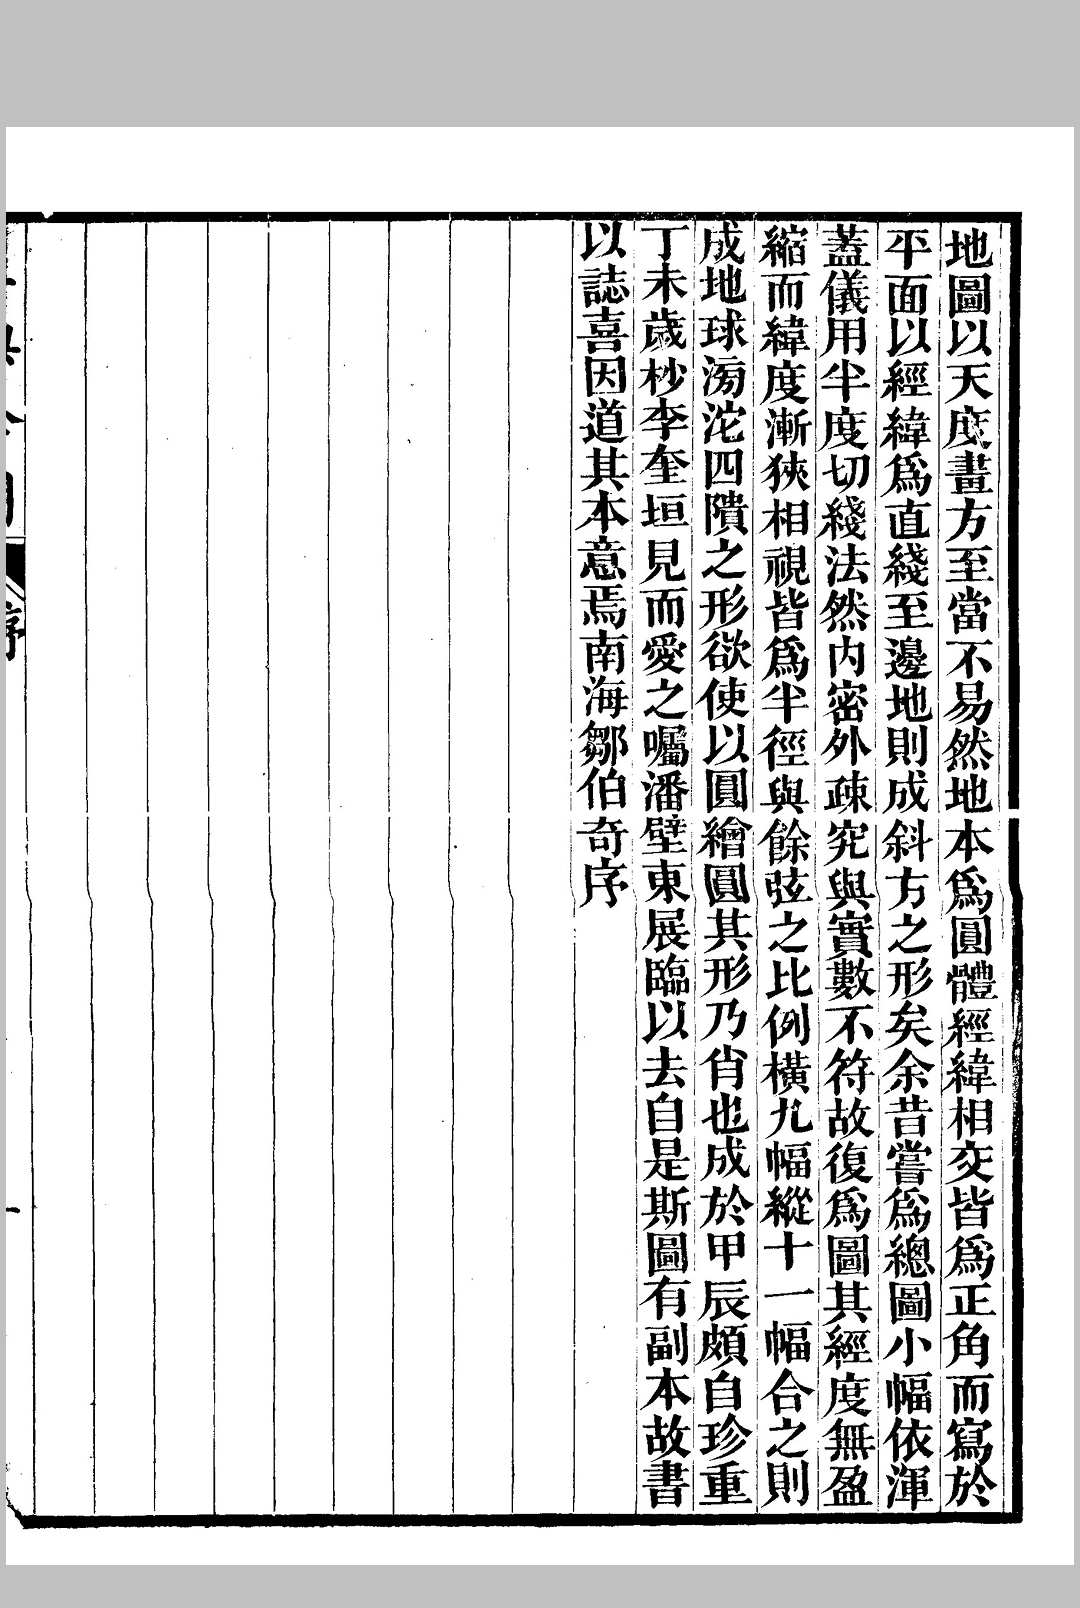 地圖以天度畫方至當不易然地本爲圓體經緯相交皆爲正角而寫於
平面以經緯爲直綫至邊地則成斜方之形矣余昔嘗爲總圖小幅依渾
蓋儀用半度切綫法然內密外疎究與實數不符故復爲圖其經度無盈
縮而緯度漸狹相視皆爲半徑與餘弦之比例橫九幅縱十一幅合之則
成地球滂沱四隤之形欲使以圓繪圓其形乃肖也成於甲辰頗自珍重
丁未歲杪李奎垣見而愛之囑潘壁東展臨以去自是斯圖有副本故書
以誌喜因道其本意焉南海鄒伯奇序
序
一